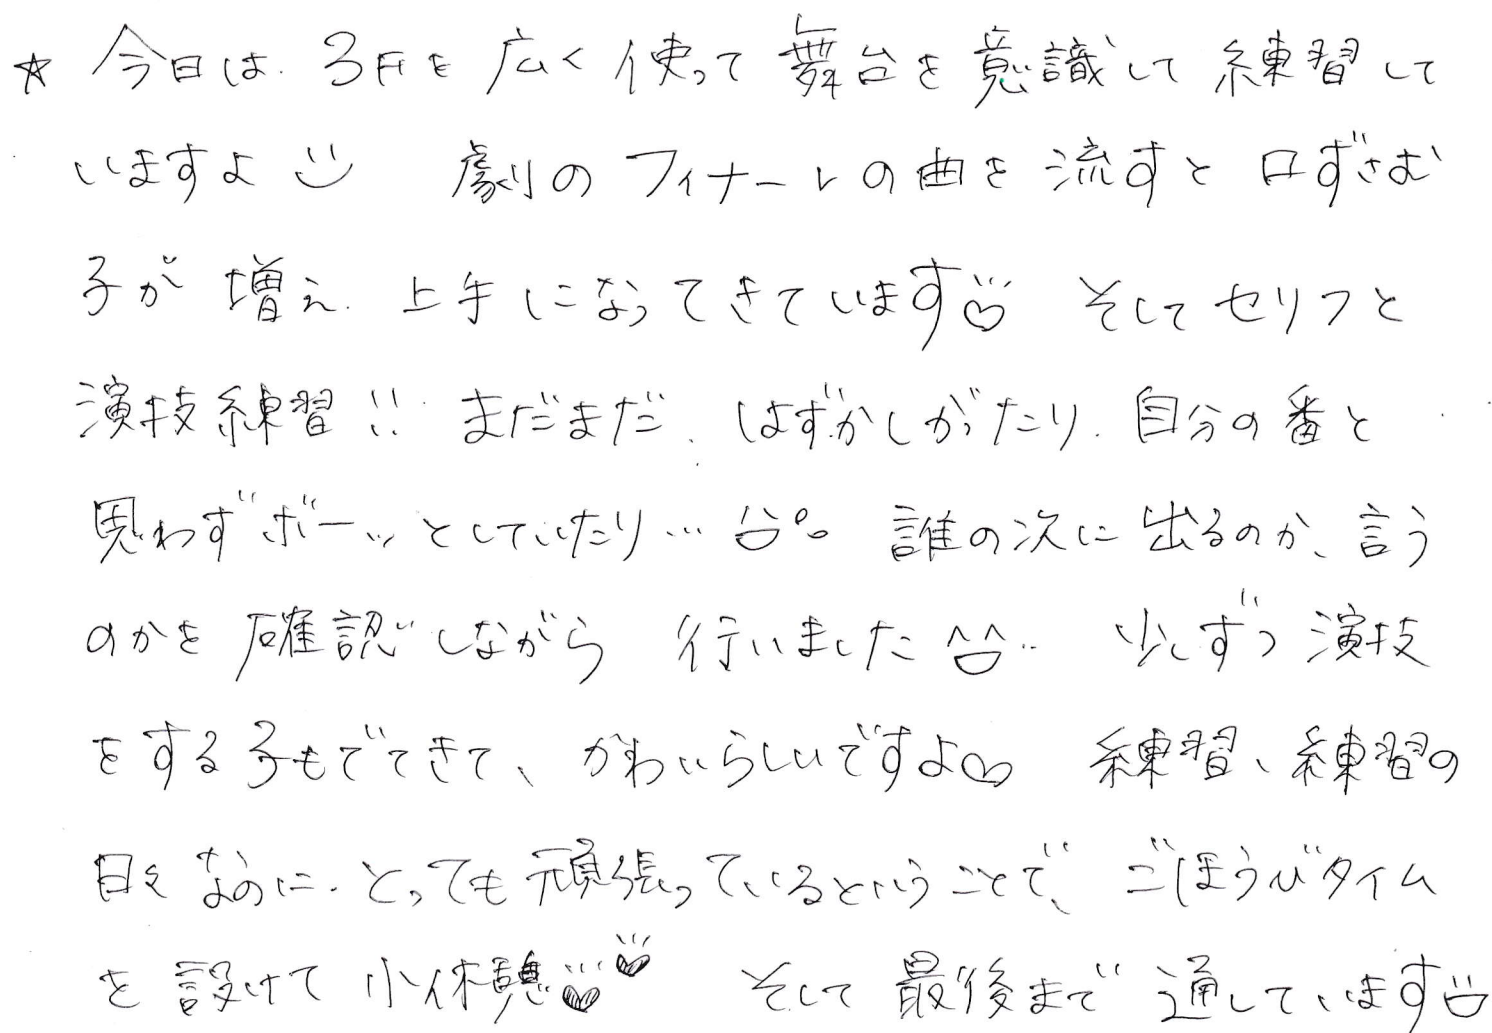 ☆ 今日は、3Fを広く使って舞台を意識して練習して
いますよ 劇のフィナーレの曲を流すと口ずさむ
子が増え、上手になってきています♡ そしてセリフと
演技練習!! まだまだ、はずかしがったり、自分の番と
思わずボーッとしていたり… 誰の次に出るのか、言う
のかを確認しながら 行いました 少しずつ演技
をする子もでてきて、かわいらしいですよ♡ 練習、練習の
日々なのに、とっても頑張っているということで、ごほうびタイム
を設けて小休憩♥♥ そして最後まで通しています